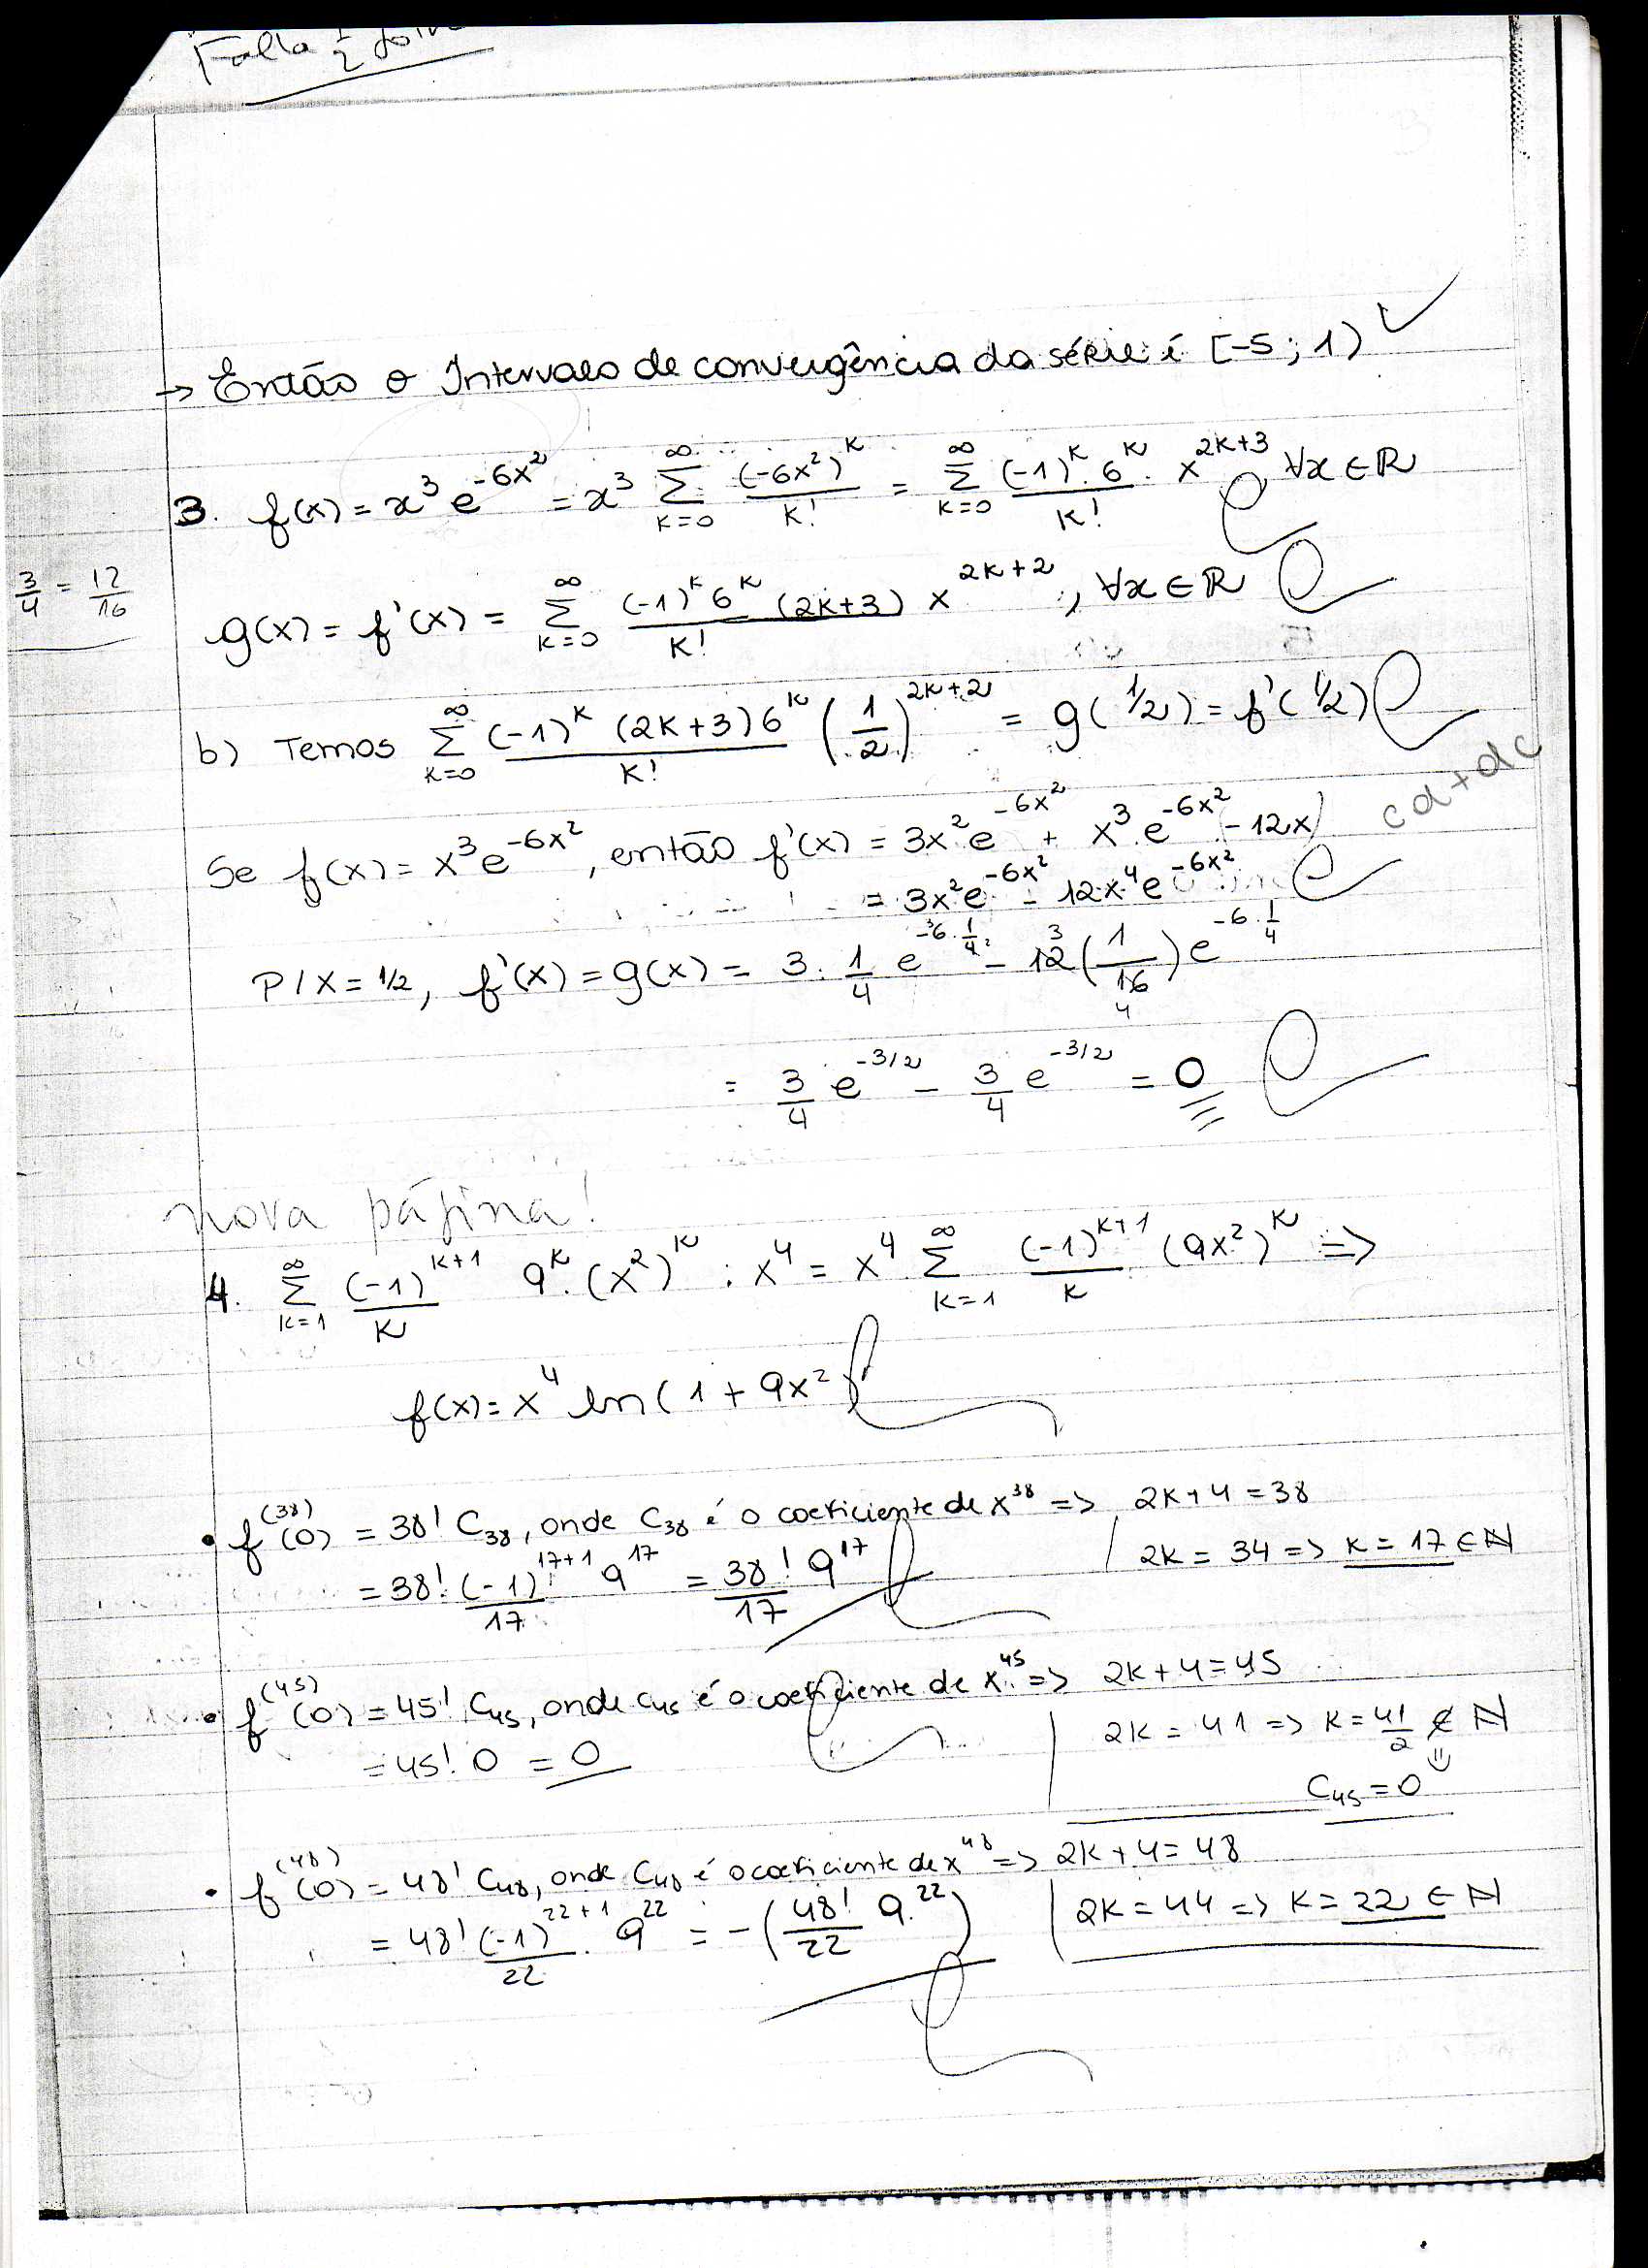 Falta 1/2
→ Então o Intervalo de convergência da série é [-5 ; 1) ✓
3. f(x) = x³ e^{-6x²} = x³ ∑_{k=0}^{∞} (-6x²)^k / k! = ∑_{k=0}^{∞} (-1)^k . 6^k / k! . x^{2k+3}, ∀x ∈ ℝ
3/4 = 12/16
g(x) = f'(x) = ∑_{k=0}^{∞} (-1)^k 6^k (2k+3) / k! x^{2k+2}, ∀x ∈ ℝ
b) Temos ∑_{k=0}^{∞} (-1)^k (2k+3) 6^k / k! (1/2)^{2k+2} = g(1/2) = f'(1/2)
cd + dc
Se f(x) = x³ e^{-6x²}, então f'(x) = 3x² e^{-6x²} + x³ . e^{-6x²} (-12x)
= 3x² e^{-6x²} - 12x⁴ e^{-6x²}
P/ x = 1/2, f'(x) = g(x) = 3 . 1/4 e^{-6 . 1/4} - 12 (1/16) e^{-6 . 1/4}
3 4
= 3/4 e^{-3/2} - 3/4 e^{-3/2} = 0
nova página!
4. ∑_{k=1}^{∞} (-1)^{k+1} / k 9^k . (x²)^k . x⁴ = x⁴ ∑_{k=1}^{∞} (-1)^{k+1} / k . (9x²)^k =>
f(x) = x⁴ ln(1 + 9x²)
• f^{(38)}(0) = 38! C₃₈, onde C₃₈ é o coeficiente de x³⁸ => 2k+4 = 38
= 38! (-1)^{17+1} / 17 . 9^{17} = 38! / 17 9^{17} 2k = 34 => k = 17 ∈ ℕ
• f^{(45)}(0) = 45! C₄₅, onde C₄₅ é o coeficiente de x⁴⁵ => 2k+4 = 45
= 45! 0 = 0 2k = 41 => k = 41/2 ∉ ℕ
⇓
C₄₅ = 0
• f^{(48)}(0) = 48! C₄₈, onde C₄₈ é o coeficiente de x⁴⁸ => 2k+4 = 48
= 48! (-1)^{22+1} / 22 . 9^{22} = -(48! / 22 9^{22}) 2k = 44 => k = 22 ∈ ℕ